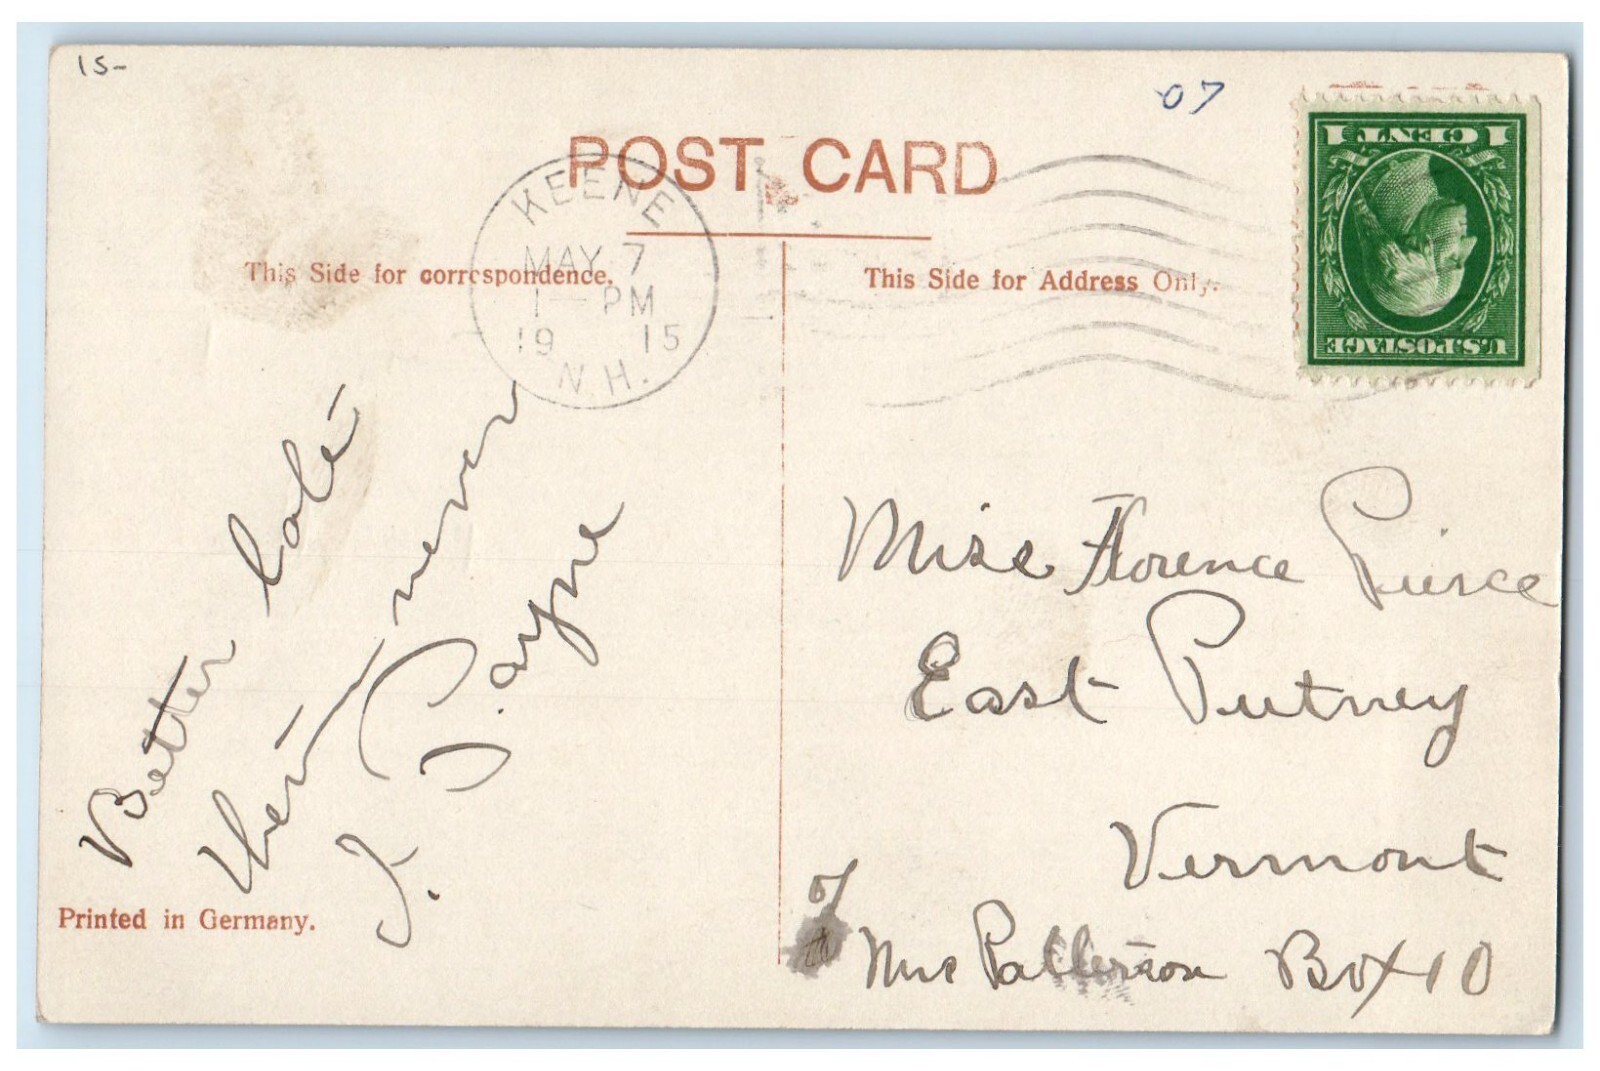 15-
07
POST CARD
KEENE
MAY 7
1-PM
19 15
N.H.
This Side for correspondence.
This Side for Address Only.
1 CENT 1
U.S. POSTAGE
Better late
then never
J. Payne
Miss Florence Pierce
East Putney
Vermont
Mrs Patterson Box 10
Printed in Germany.